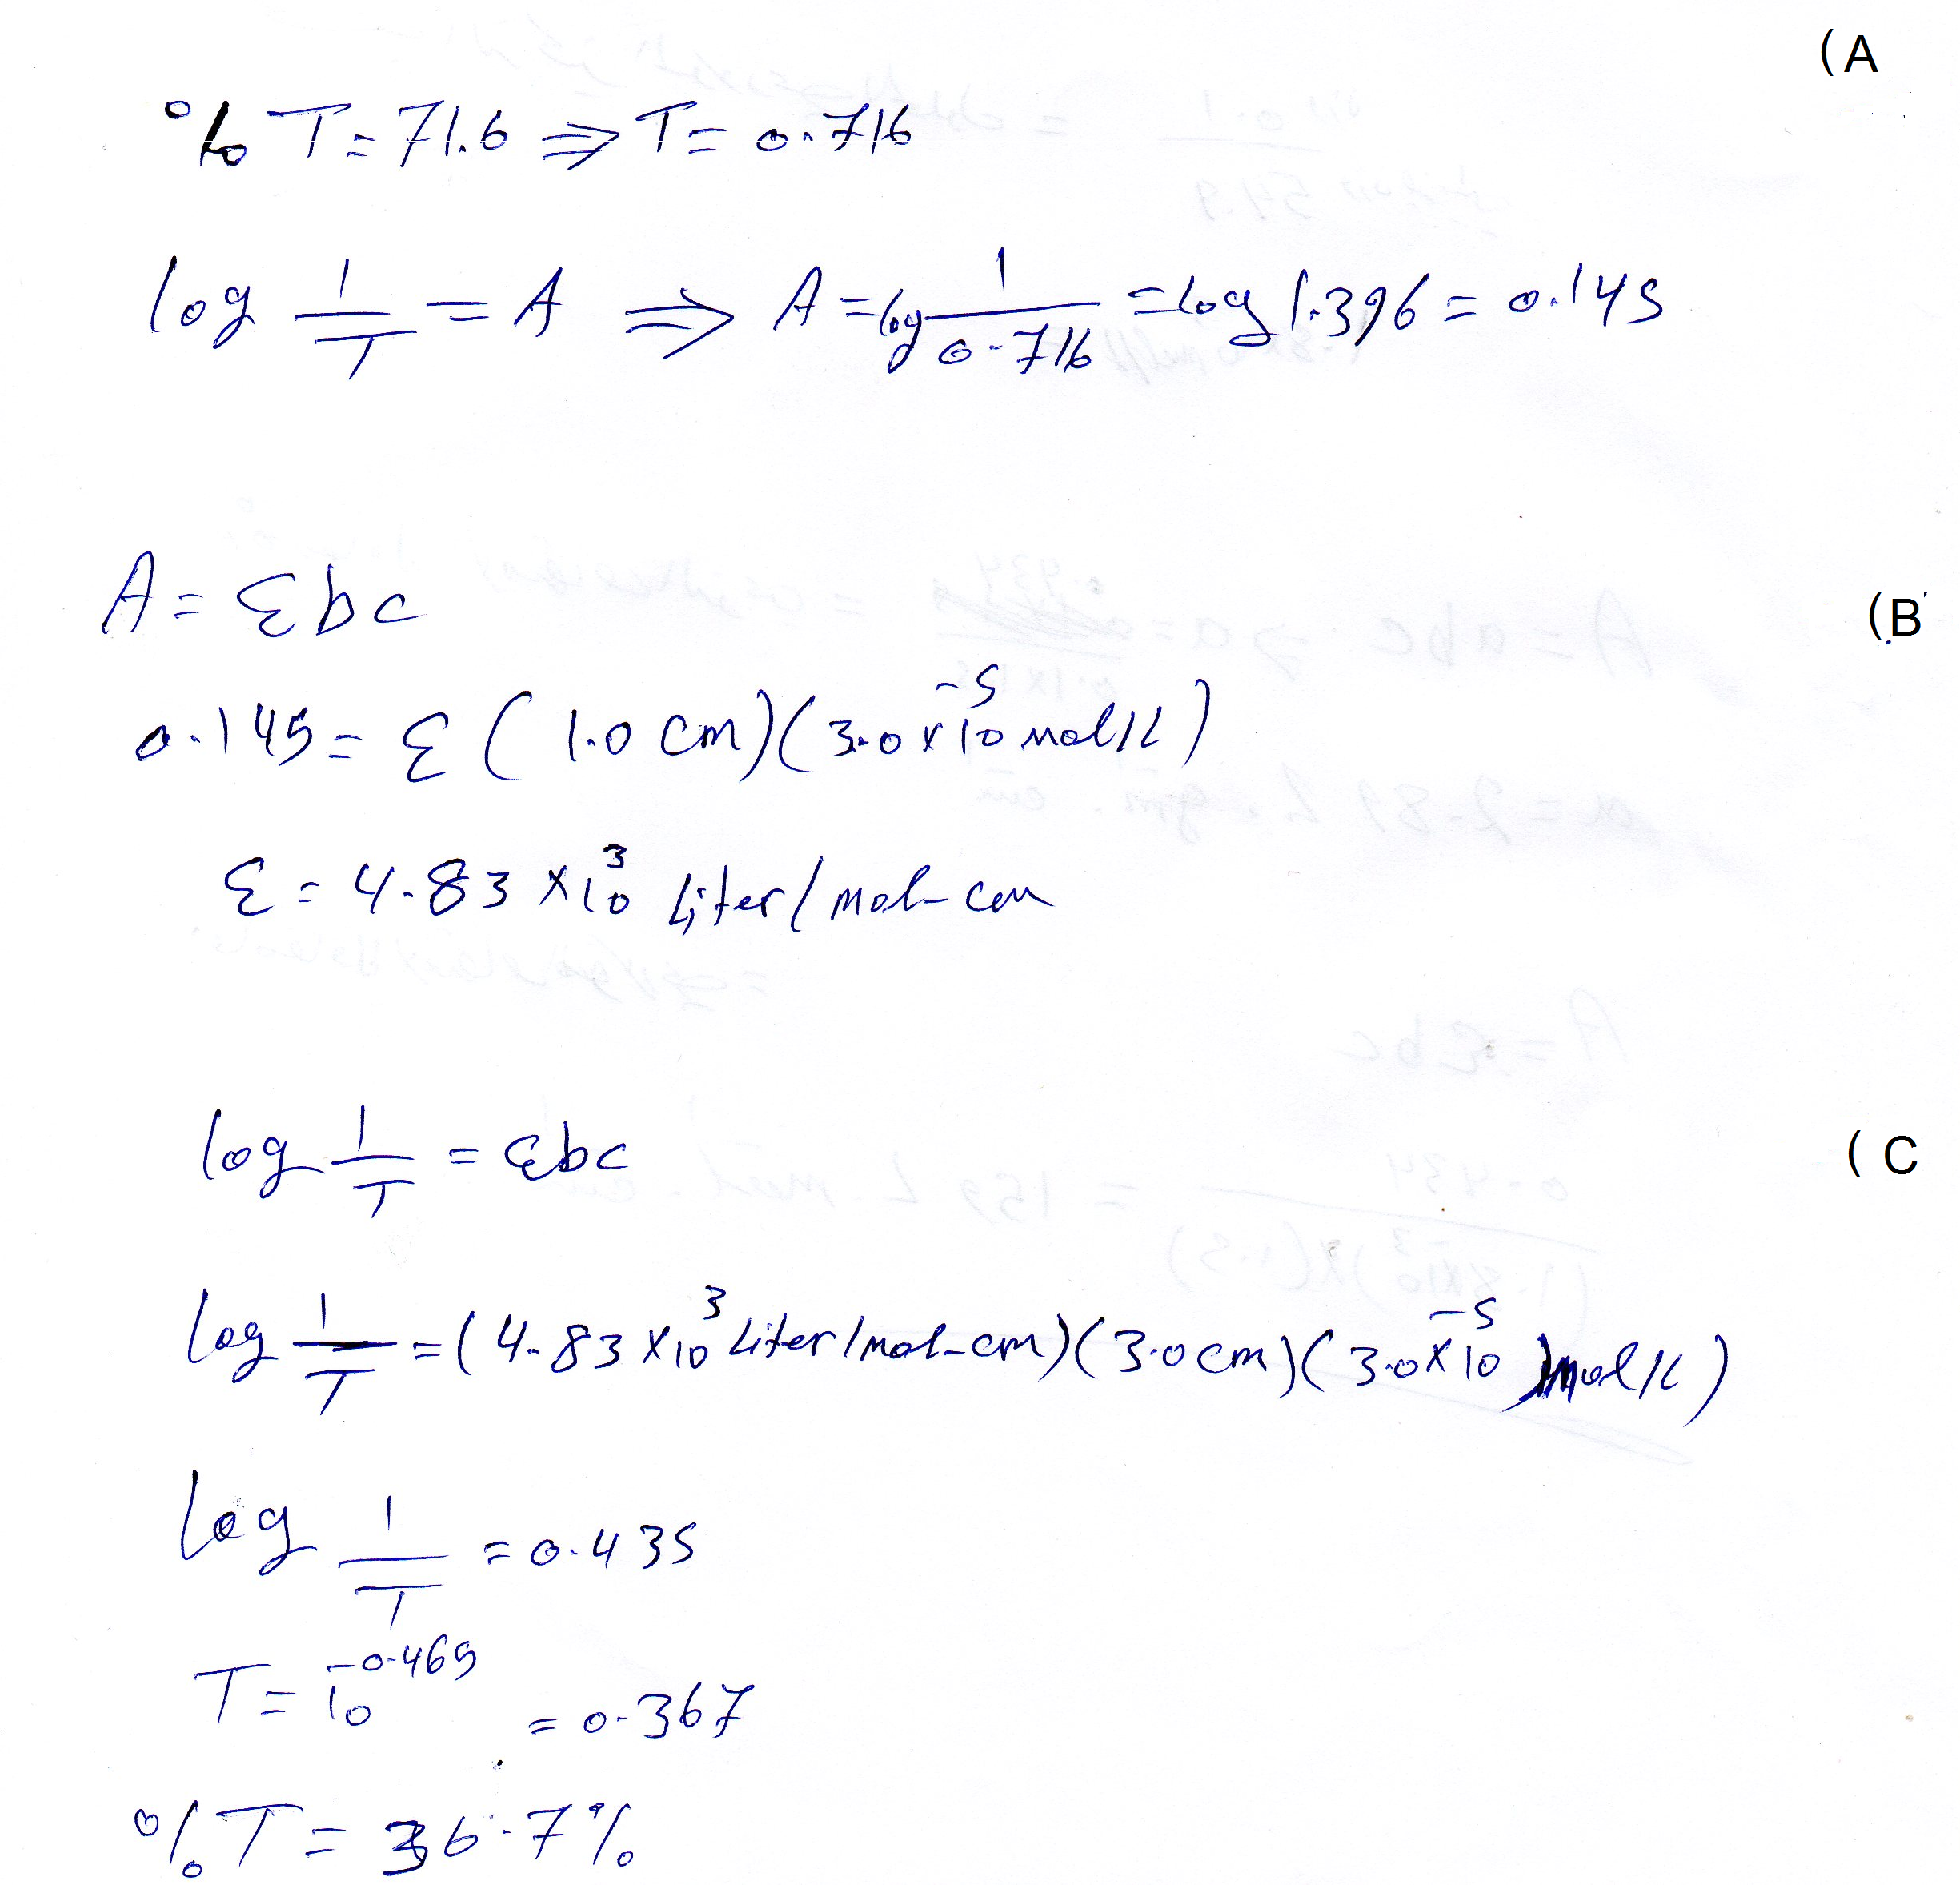 (A
% T = 71.6 ⇒ T = 0.716
log 1/T = A ⇒ A = log 1/0.716 = log 1.396 = 0.145
(B
A = εbc
0.145 = ε (1.0 cm)(3.0 x 10^-5 mol/L)
ε = 4.83 x 10^3 Liter/mol-cm
(C
log 1/T = εbc
log 1/T = (4.83 x 10^3 Liter/mol-cm)(3.0 cm)(3.0 x 10^-5 mol/L)
log 1/T = 0.435
T = 10^-0.465 = 0.367
% T = 36.7 %